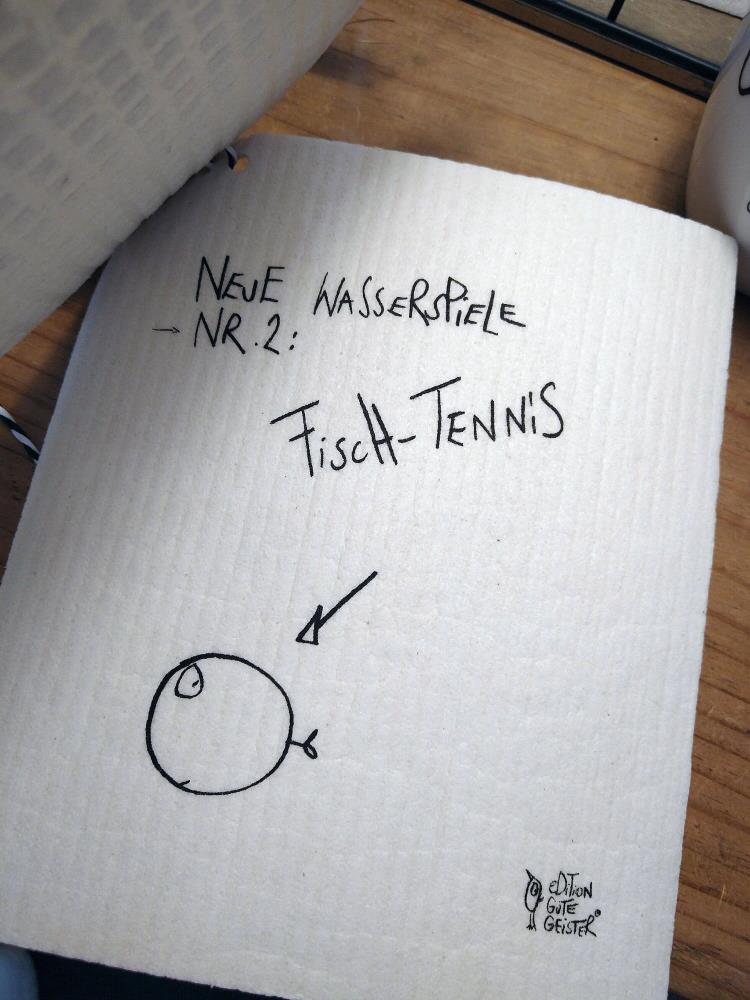 NEUE WASSERSPiELE
→ NR. 2:
FiscH-TENNiS
eDiTion
GUTE
GEiSTER®